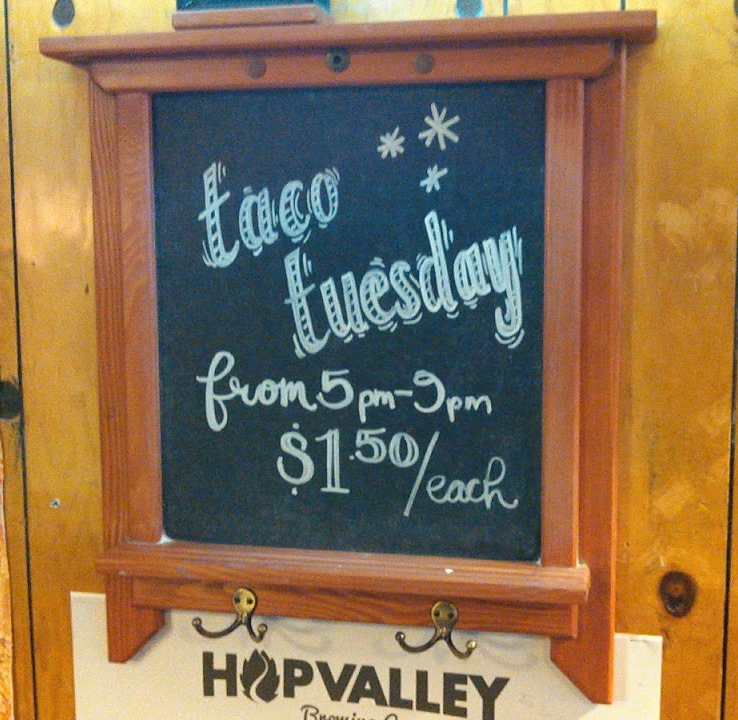 taco
tuesday
from 5pm-9pm
$1.50/each
HOPVALLEY
Brewing